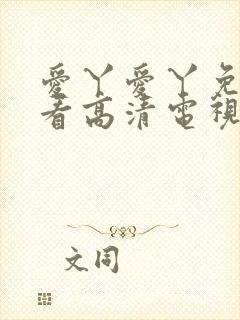 愛丫愛丫免
看高清電視
文同